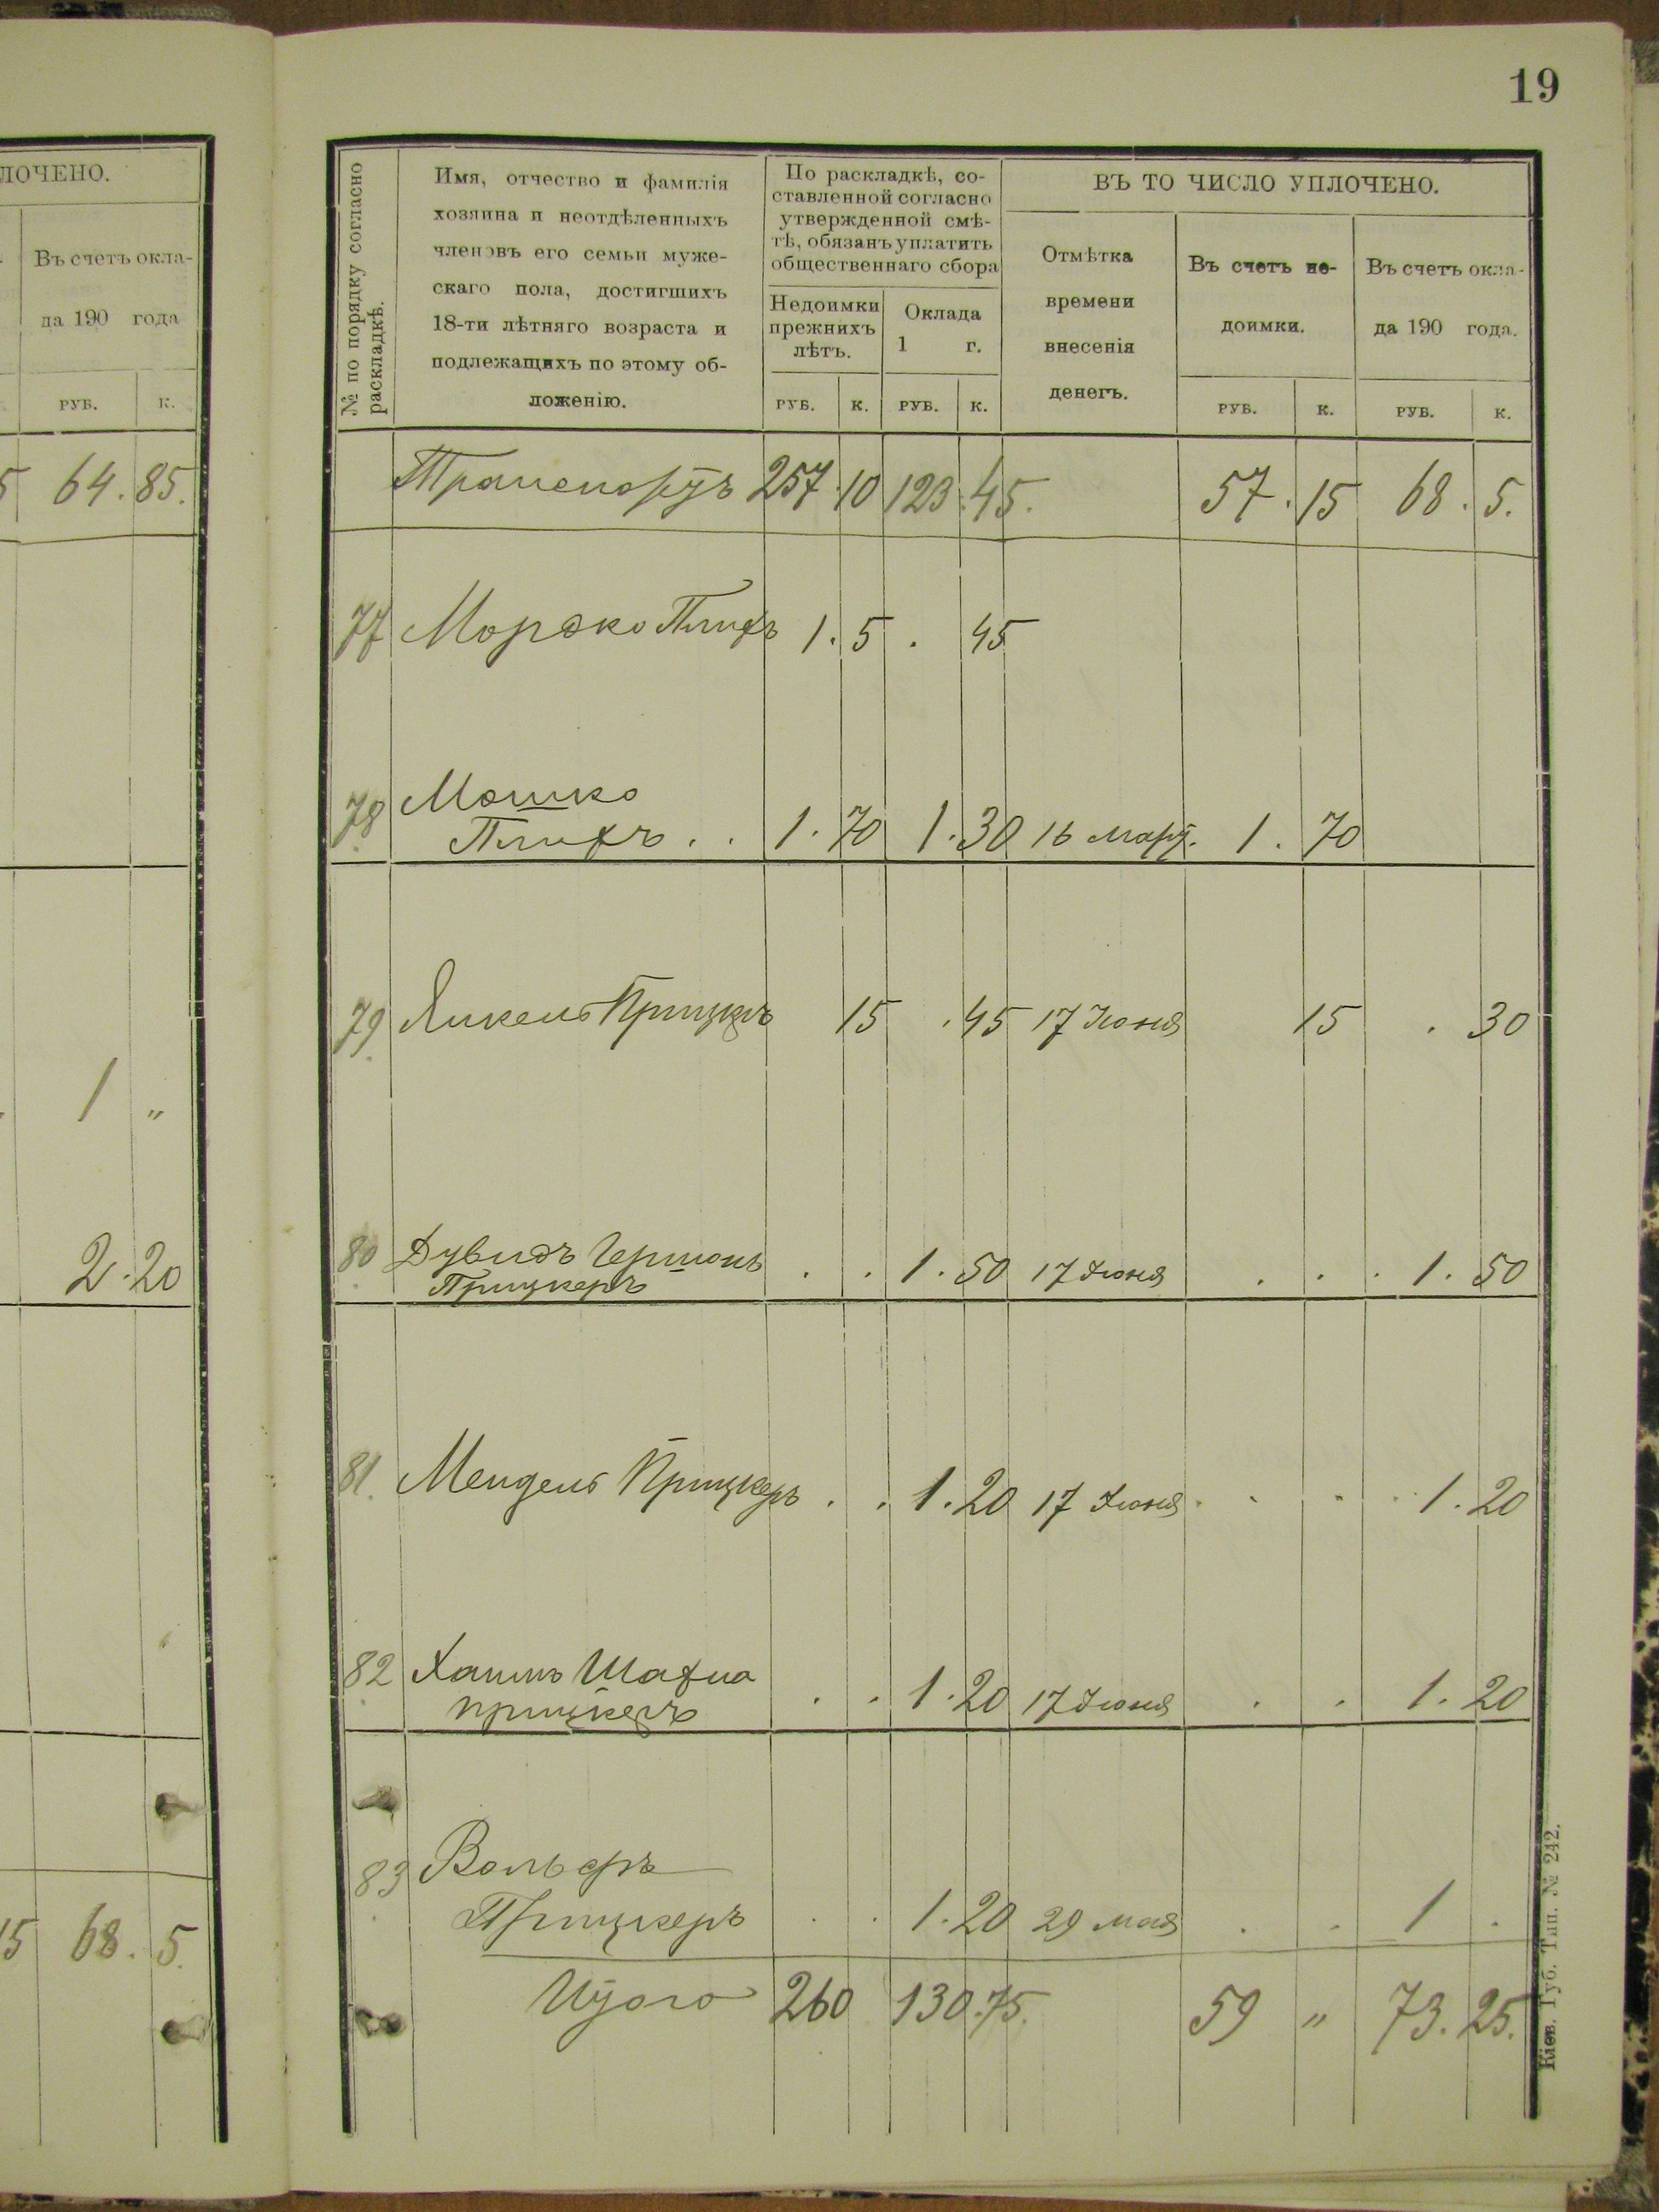 ЛОЧЕНО.
Въ счетъ окла-
да 190 года
РУБ. К.
5 64. 85.
1 „
2. 20
15 68. 5.
19
№ по порядку согласно
раскладкѣ.
Имя, отчество и фамилія
хозяина и неотдѣленныхъ
членовъ его семьи муже-
скаго пола, достигшихъ
18-ти лѣтняго возраста и
подлежащихъ по этому об-
ложенію.
По раскладкѣ, со-
ставленной согласно
утвержденной смѣ-
тѣ, обязанъ уплатить
общественнаго сбора
Недоимки
прежнихъ
лѣтъ.
Оклада
1 г.
РУБ. К. РУБ. К.
ВЪ ТО ЧИСЛО УПЛОЧЕНО.
Отмѣтка
времени
внесенія
денегъ.
Въ счетъ не-
доимки.
РУБ. К.
Въ счетъ окла-
да 190 года.
РУБ. К.
Транспортъ 257. 10 123. 45. 57. 15 68. 5.
77 Мордко 1. 5 . 45
78 Мошко
1. 70 1. 30 16 март. 1. 70
79 Янкель Прицкеръ 15 . 45 17 Іюня 15 . 30
80 Дувидъ Гершонъ
Прицкеръ . . 1. 50 17 Іюня . . . 1. 50
81. Мендель Прицкеръ . . 1. 20 17 Іюня . . . 1. 20
82 Хаимъ
Прицкеръ . . 1. 20 17 Іюня . . 1. 20
83 Вольфъ
Прицкеръ . . 1. 20 29 мая . . 1 .
Итого 260 130. 75. 59 „ 73. 25.
Кіев. Губ. Тип. № 242.